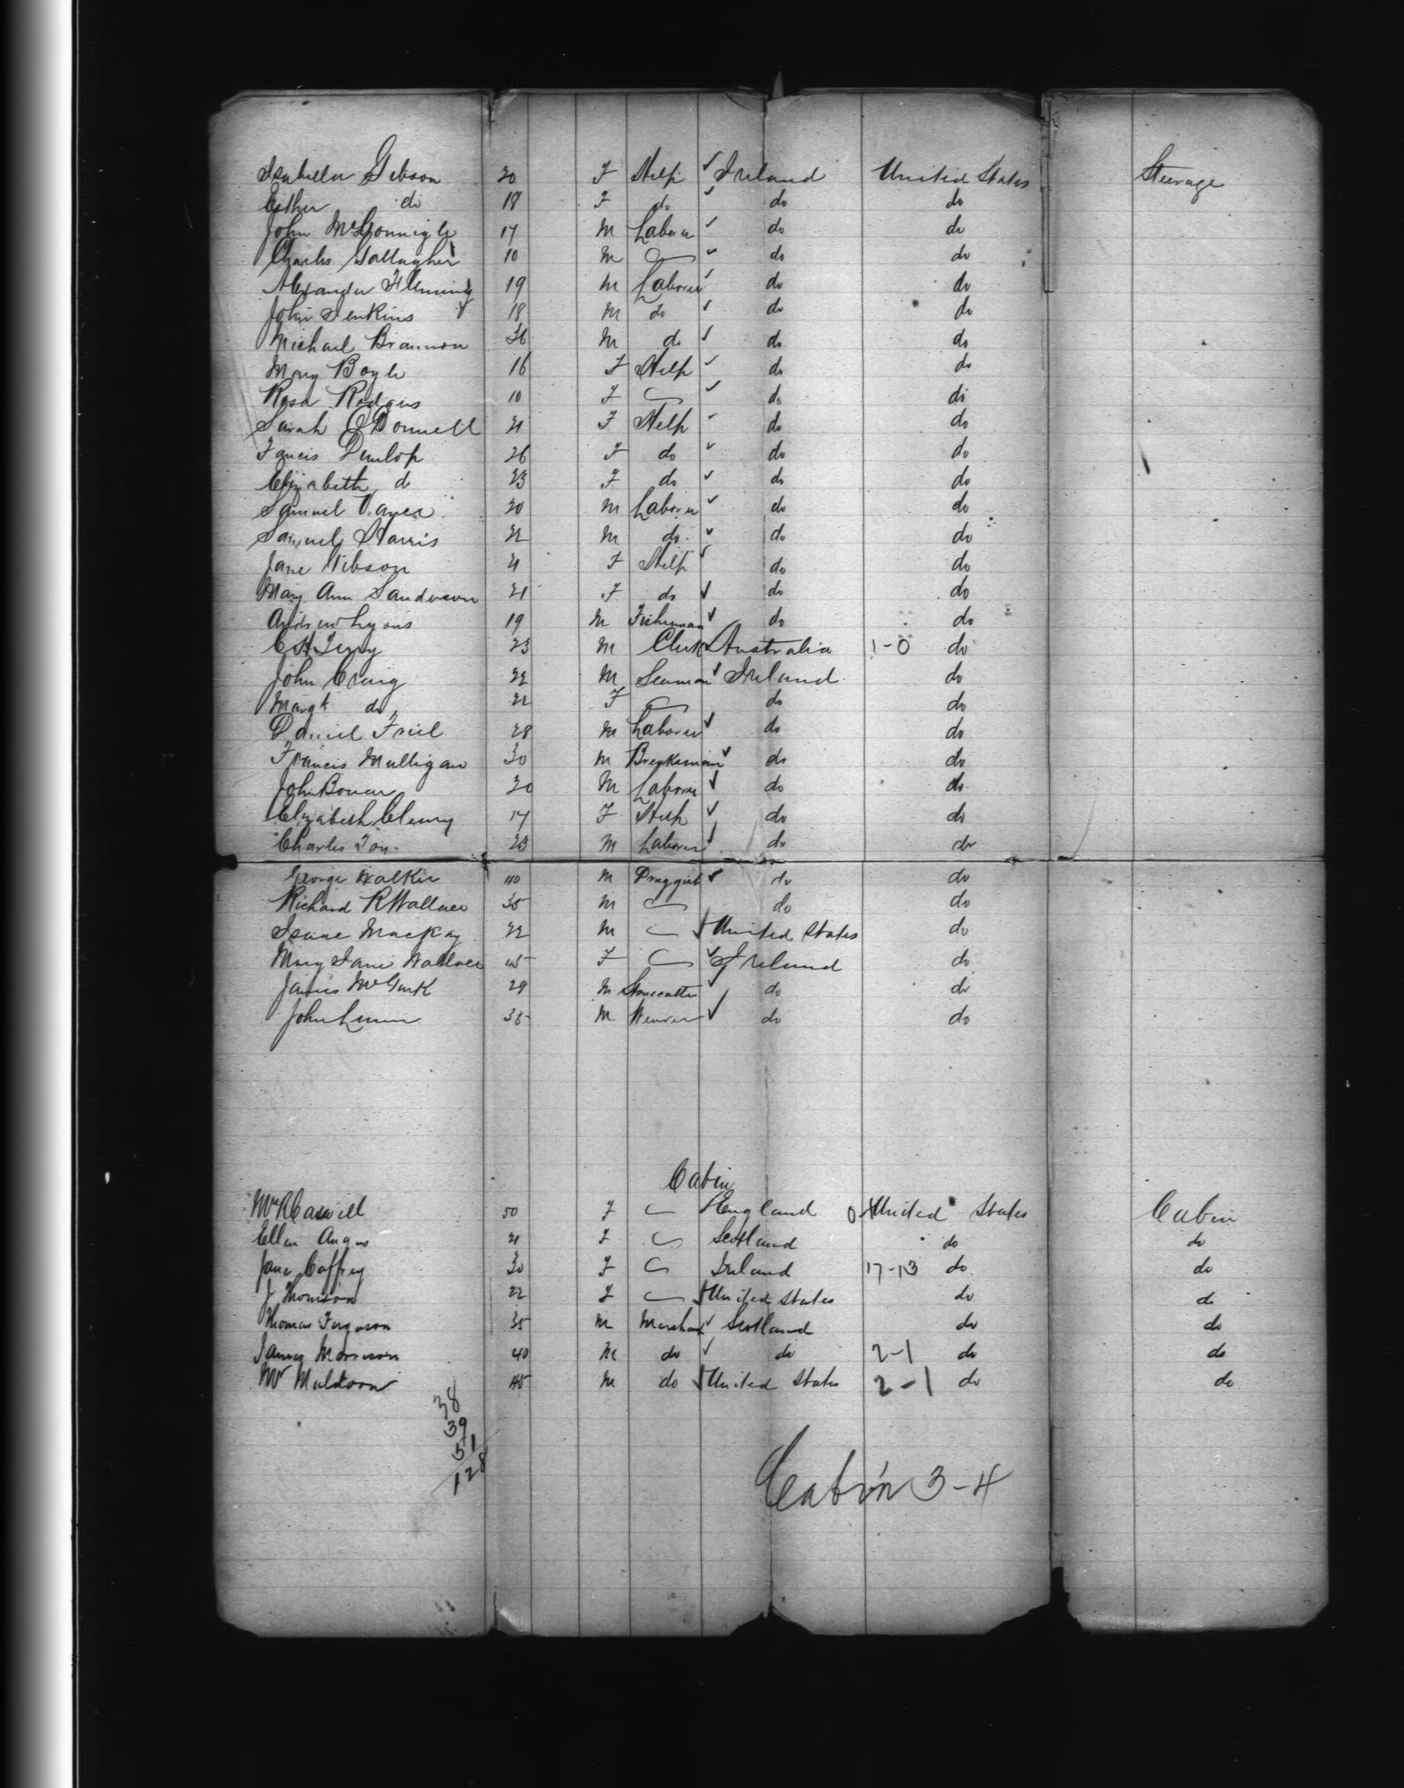 Isabella Gibson 20 F Help Ireland United States Steerage
Esther do 18 F do do do
John McGonnigle 17 M Laborer do do
Charles Gallagher 10 M do do
Alexander Fleming 19 M Laborer do do
John Jenkins 18 M do do do
Michael Brannon 26 M do do do
Mary Boyle 16 F Help do do
Rosa Rodgers 10 F do do
Sarah O'Donnell 21 F Help do do
Francis Dunlop 26 F do do do
Elizabeth do 23 F do do do
Samuel 20 M Laborer do do
Samuel Harris 22 M do do do
Jane Gibson 21 F Help do do
Mary Ann Sanderson 21 F do do do
Andrew Lyons 19 M Fisherman do do
C H Terry 23 M Clerk Australia 1-0 do
John Craig 22 M Seaman Ireland do
Margt do 22 F do do
Daniel Friel 28 M Laborer do do
Francis Mulligan 30 M do do
John Bonar 20 M Laborer do do
Elizabeth Cleary 17 F Help do do
Charles 23 M Laborer do do
George Walker 40 M Druggist do do
Richard R Wallace 35 M do do
Isaac Mackay 22 M United States do
Mary Jane Wallace 45 F Ireland do
James McGurk 29 M Stonecutter do do
John 35 M Weaver do do
Cabin
50 F England United States Cabin
Ellen Angus 21 F Scotland do do
Jane Caffrey 30 F Ireland 17-13 do do
J Thomson 22 F United States do do
Thomas Ferguson 35 M Merchant Scotland do do
James Morrison 40 M do do 2-1 do do
Mr Muldoon 45 M do United States 2-1 do do
38
39
51
128
Cabin 3-4